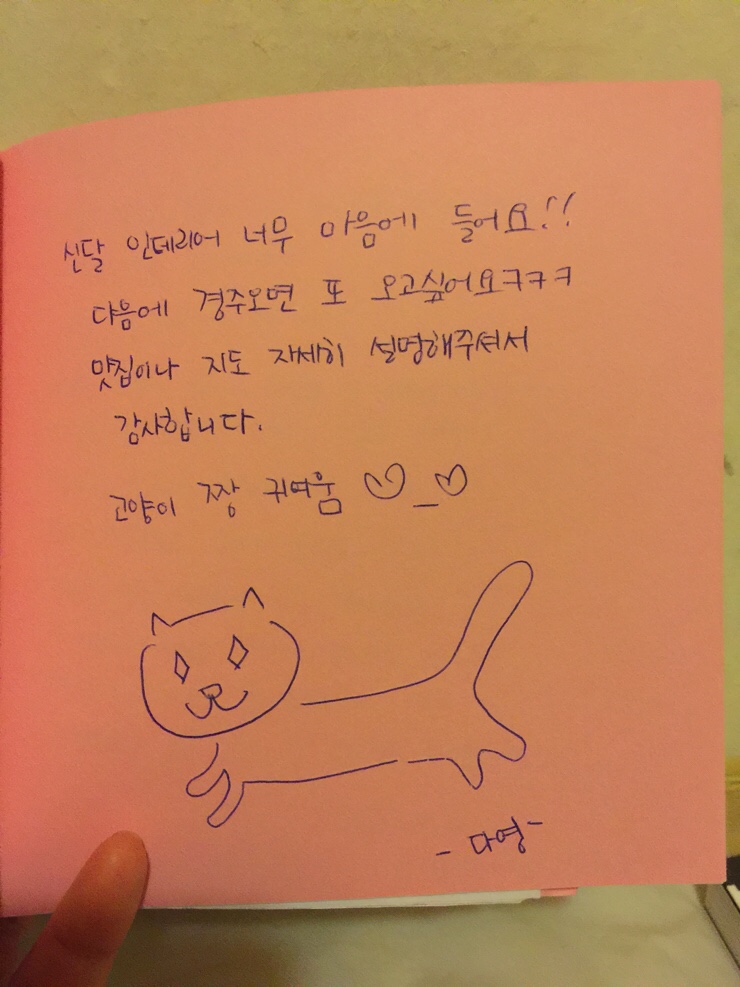 신달 인테리어 너무 마음에 들어요!!
다음에 경주오면 또 오고싶어요ㅋㅋㅋ
맛집이나 지도 자세히 설명해주셔서
감사합니다.
고양이 짱 귀여움 ♡_♡
- 다영 -